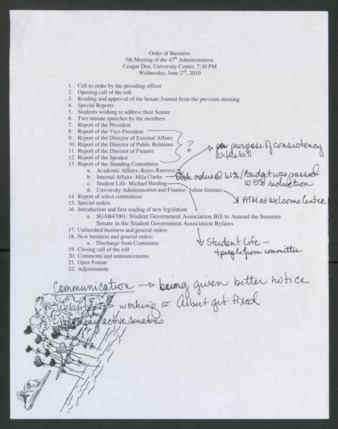 Order of Business
5th Meeting of the 47th Administration
Cougar Den, University Center, 7:30 PM
Wednesday, June 2nd, 2010
1. Call to order by the presiding officer
2. Opening call of the roll
3. Reading and approval of the Senate Journal from the previous meeting
4. Special Reports
5. Students wishing to address their Senate
6. Two minute speeches by the members
7. Report of the President
8. Report of the Vice-President
9. Report of the Director of External Affairs
10. Report of the Director of Public Relations
11. Report of the Director of Finance
12. Report of the Speaker
13. Report of the Standing Committees
a. Academic Affairs- Reyes Ramirez
b. Internal Affairs- Mila Clarke
c. Student Life- Michael Harding
d. University Administration and Finance- Julian Jiminez
14. Report of select committees
15. Special orders
16. Introduction and first reading of new legislation
a. SGAB47001: Student Government Association Bill to Amend the Summer
Senate in the Student Government Association Bylaws
17. Unfinished business and general orders
18. New business and general orders
a. Discharge from Committee
19. Closing call of the roll
20. Comments and announcements
21. Open Forum
22. Adjournment
?
purpose of consistency
budget was passed
reduction
ATM at Welcome Center
Student Life -
4 people from committee
Communication → being given better notice
working w Albert get fixed
active senators